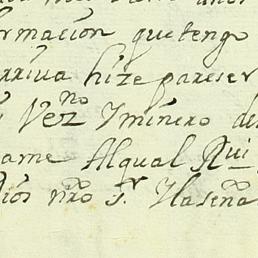 ormaçion que tengo
arriva hize pareser
Vez.no Y minero de
ame Al qual R.ui
dios nrõ s.r Y la seña